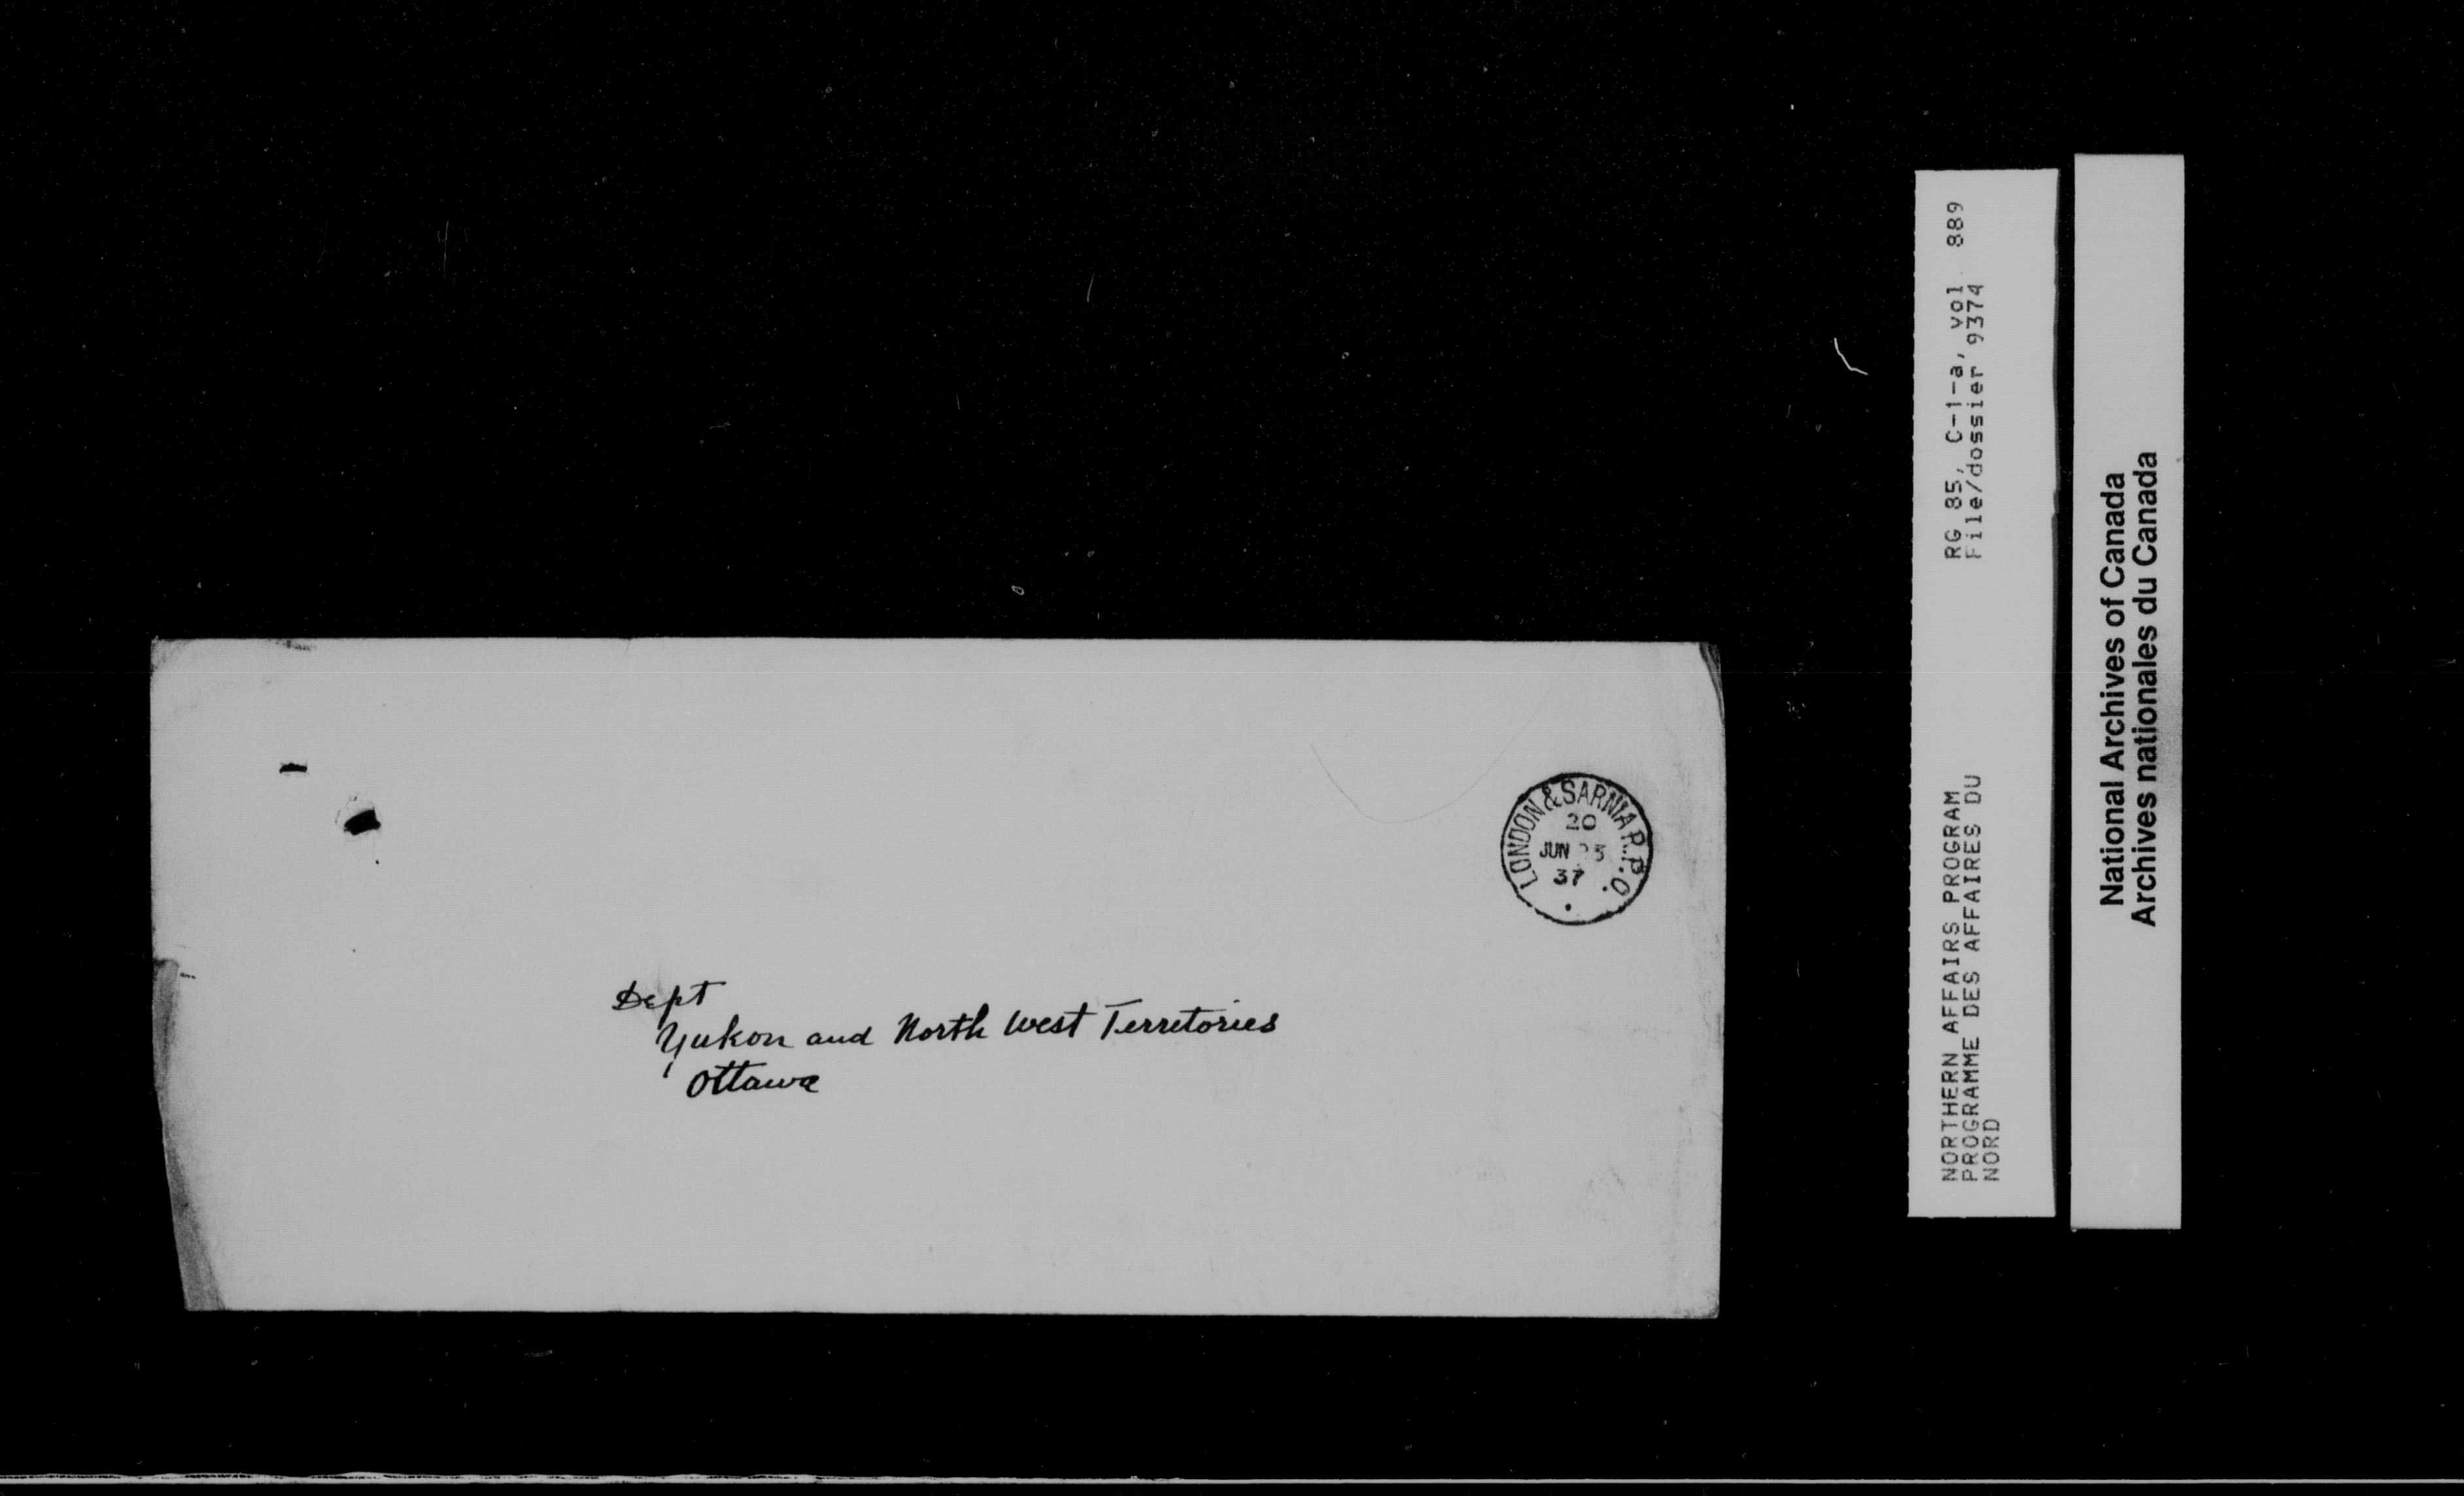 LONDON & SARNIA R.P.O.
20
JUN 23
37
Dept
Yukon and North West Terretories
Ottawa
RG 85, C-1-a, vol. 889
File/dossier 9374
NORTHERN AFFAIRS PROGRAM
PROGRAMME DES AFFAIRES DU
NORD
National Archives of Canada
Archives nationales du Canada